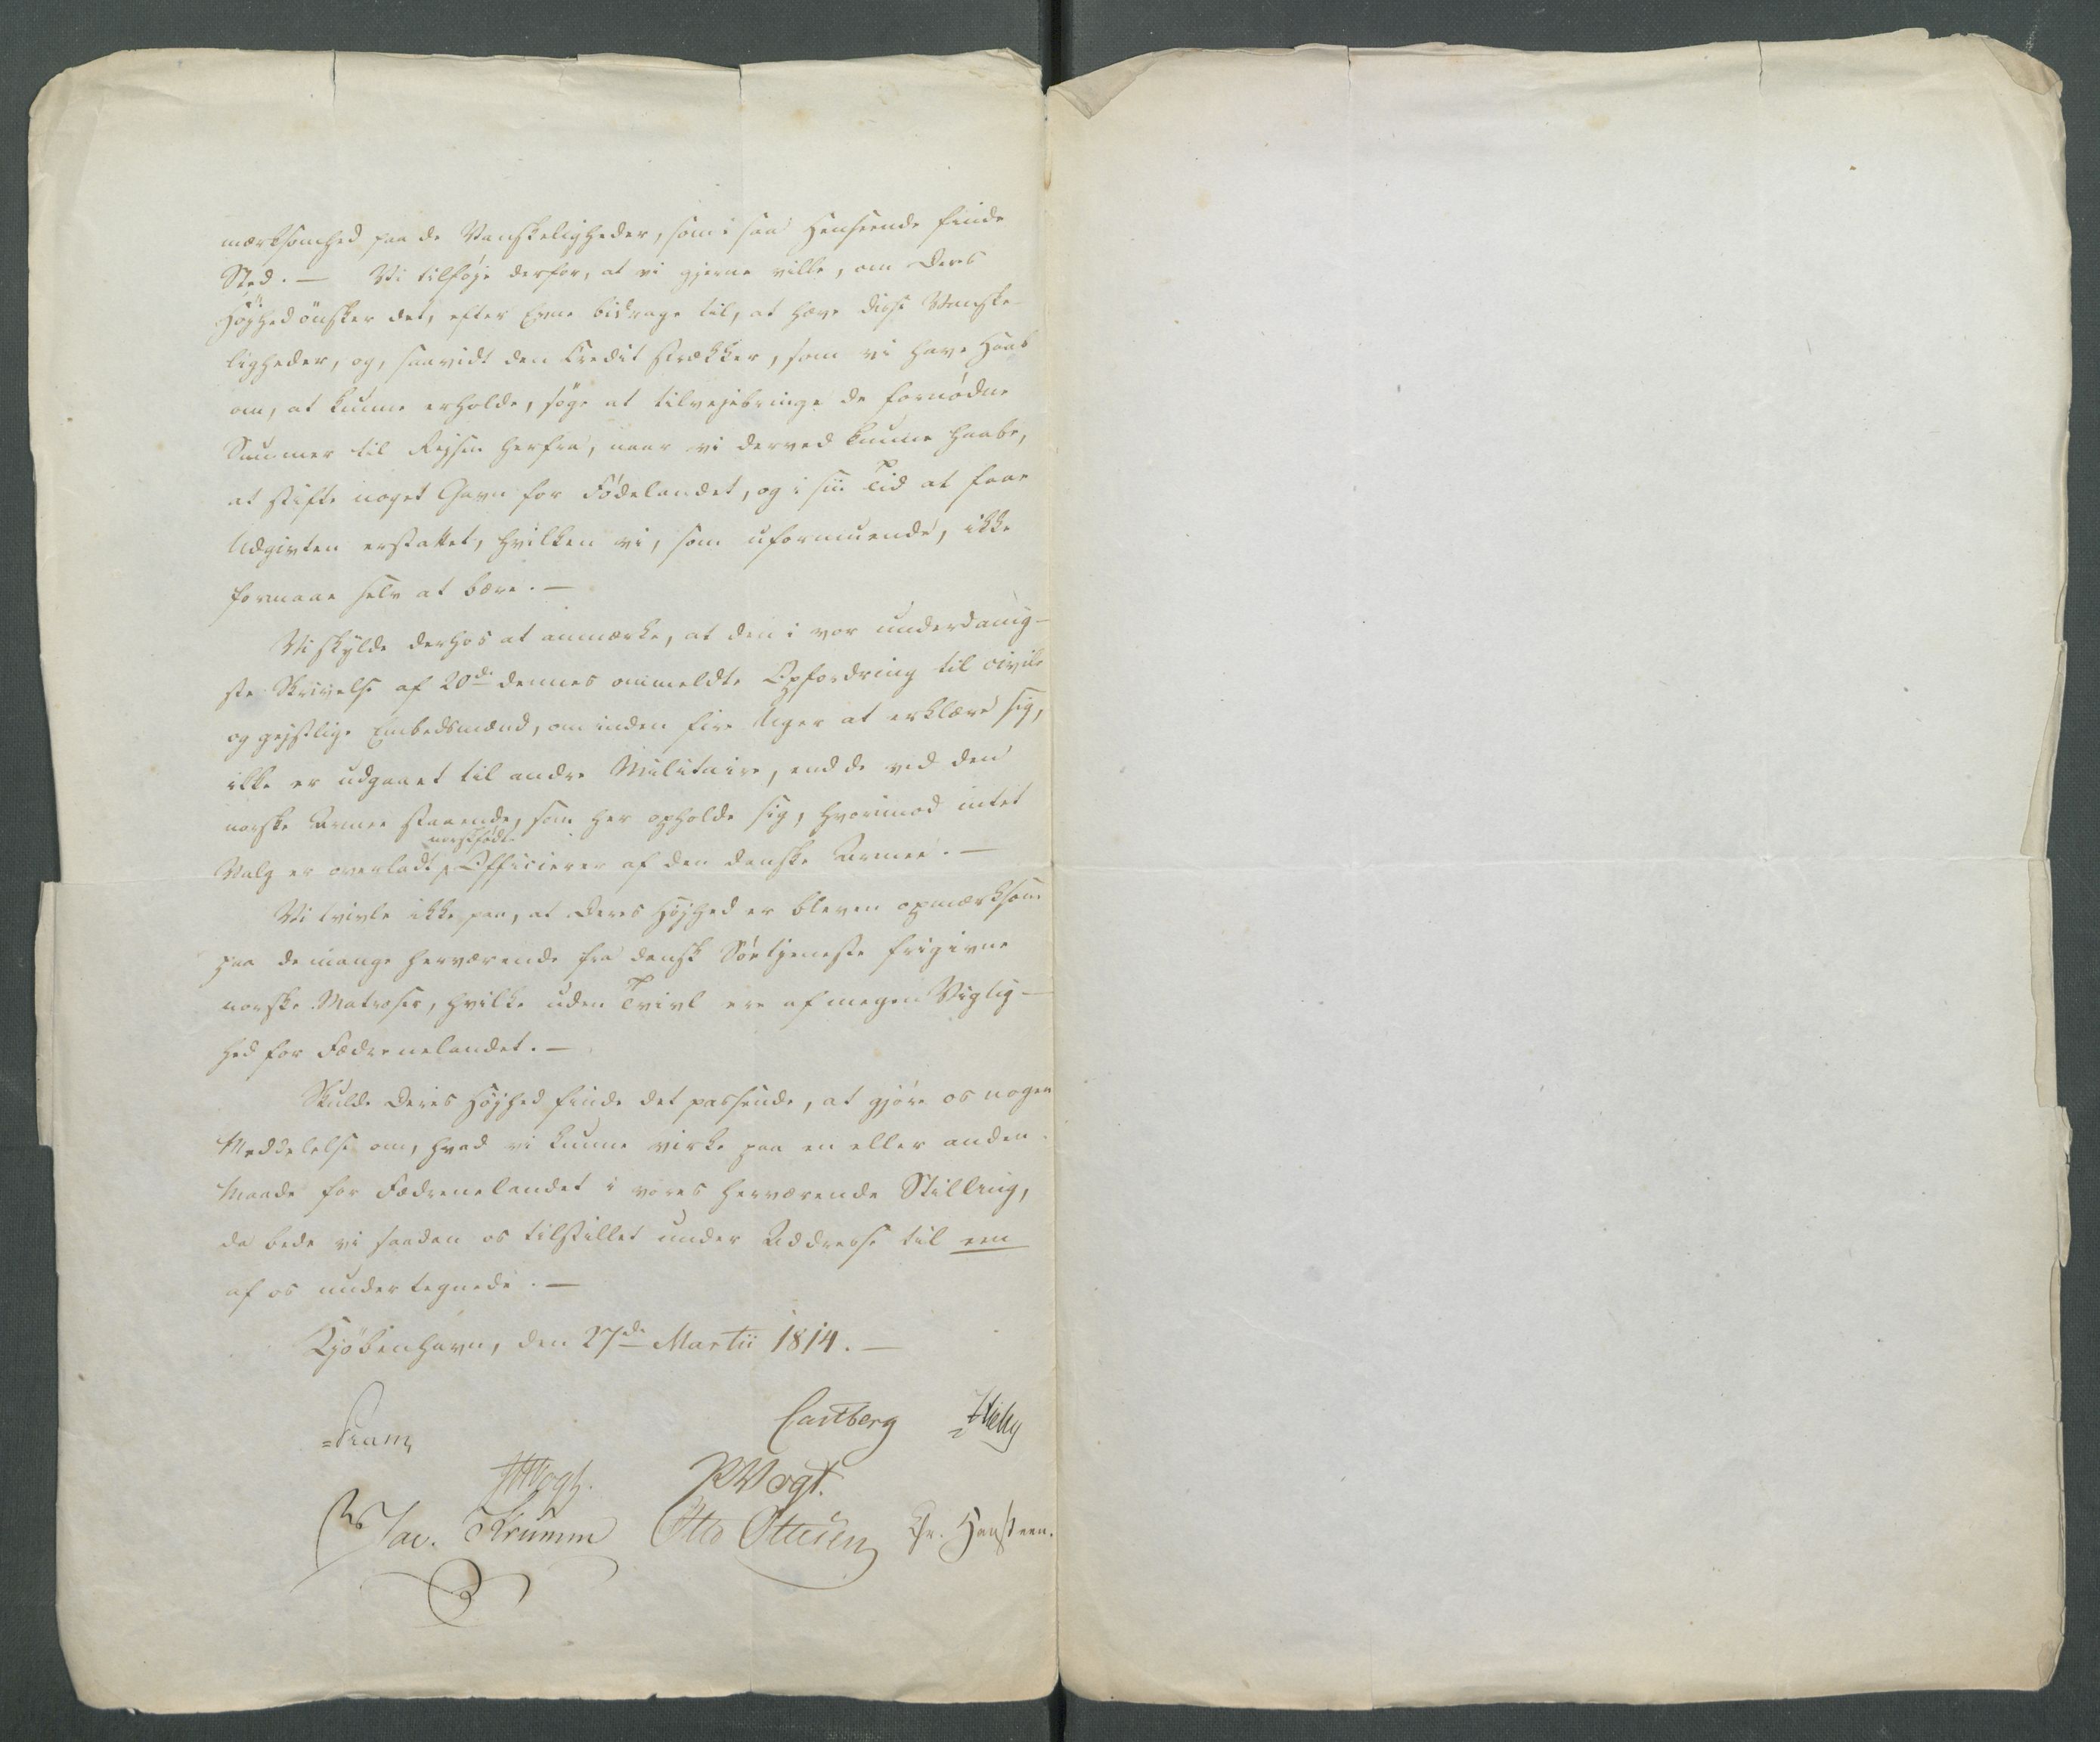 mærksomhed paa de Vanskeligheder, som i saa Henseende finde
Sted. — Vi tilføje derfor, at vi gjerne ville, om Deres
Højhed ønsker det, efter Evne bidrage til, at hæve disse Vanske-
ligheder, og, saavidt den Credit strækker, som vi have Haab
om, at kunne erholde, søge at tilvejebringe de fornødne
Summer til Rejsen herfra, naar vi derved kunne haabe,
at stifte noget Gavn for Fødelandet, og i sin Tid at faae
Udgivten erstattet, hvilken vi, som uformuende, ikke
formaae selv at bære. —
Vi skylde derhos at anmærke, at den i vor underdanig-
ste Skrivelse af 20de dennes ommeldte Opfordring til civile
og gejstlige Embedsmænd, om inden fire Uger at erklære sig,
ikke er udgaaet til andre Militaire, end de ved den
norske Armee staaende, som her opholde sig, hvorimod intet
Valg er overladt norskfødte Officierer af den danske Armee. —
Vi tvivle ikke paa, at Deres Højhed er bleven opmærksom
paa de mange herværende fra dansk Søetjeneste frigivne
norske Matroser, hvilke uden Tvivl ere af megen Vigtig-
hed for Fædrenelandet. —
Skulde Deres Højhed finde det passende, at gjøre os nogen
Meddelelse om, hvad vi kunne virke paa en eller anden
Maade for Fædrenelandet i vores herværende Stilling,
da bede vi saadan os tilstillet under Addresse til een
af os undertegnede. —
Kjøbenhavn, den 27de Martii 1814. —
Pram Castberg
JHVogt. RVogt.
Jac. Krumm Otto Ottesen Chr. Hansteen.